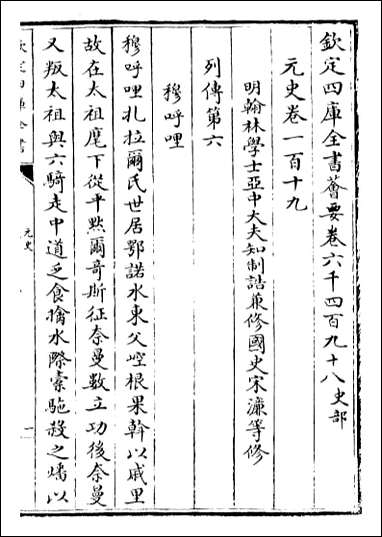 欽定四庫全書薈要卷六千四百九十八史部
元史卷一百十九
明翰林學士亞中大夫知制誥兼修國史宋濂等修
列傳第六
穆呼哩
穆呼哩札拉爾氏世居鄂諾水東父崆根果斡以戚里
故在太祖麾下從平默爾奇斯征奈曼數立功後奈曼
又叛太祖與六騎走中道乏食擒水際槖駞殺之燔以
欽定四庫全書
元史
一